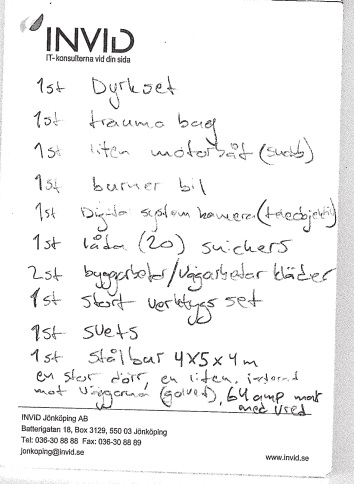 INVID
IT-konsulterna vid din sida
1st Dyrkset
1st trauma bag
1st liten motorbåt (snabb)
1st burner bil
1st Digital system kamera (teleobjektiv)
1st låda (20) snickers
2st byggarbetar/vägarbetar kläder
1st stort verktygs set
1st svets
1st stålbur 4x5x4m
en stor dörr, en liten,
mot väggarna (golvet), 64 amp mat
med vred
INVID Jönköping AB
Batterigatan 18, Box 3129, 550 03 Jönköping
Tel: 036-30 88 88 Fax: 036-30 88 89
jonkoping@invid.se
www.invid.se